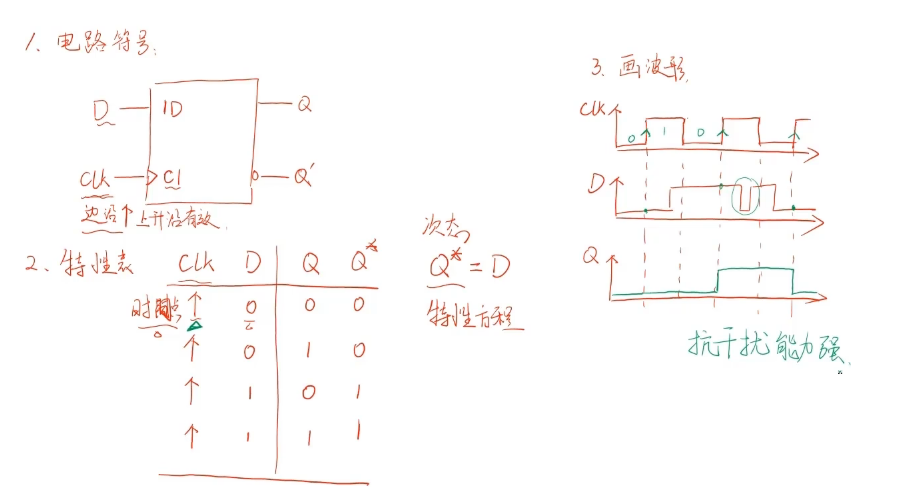 1、电路符号:
D 1D Q
CLK C1 Q'
边沿↑上升沿有效.
2、特性表 CLK D Q Q*
时间点 ↑ 0 0 0
↑ 0 1 0
↑ 1 0 1
↑ 1 1 1
次态
Q*=D
特性方程
3、画波形
CLK 0 1 0
D
Q
抗干扰能力强.